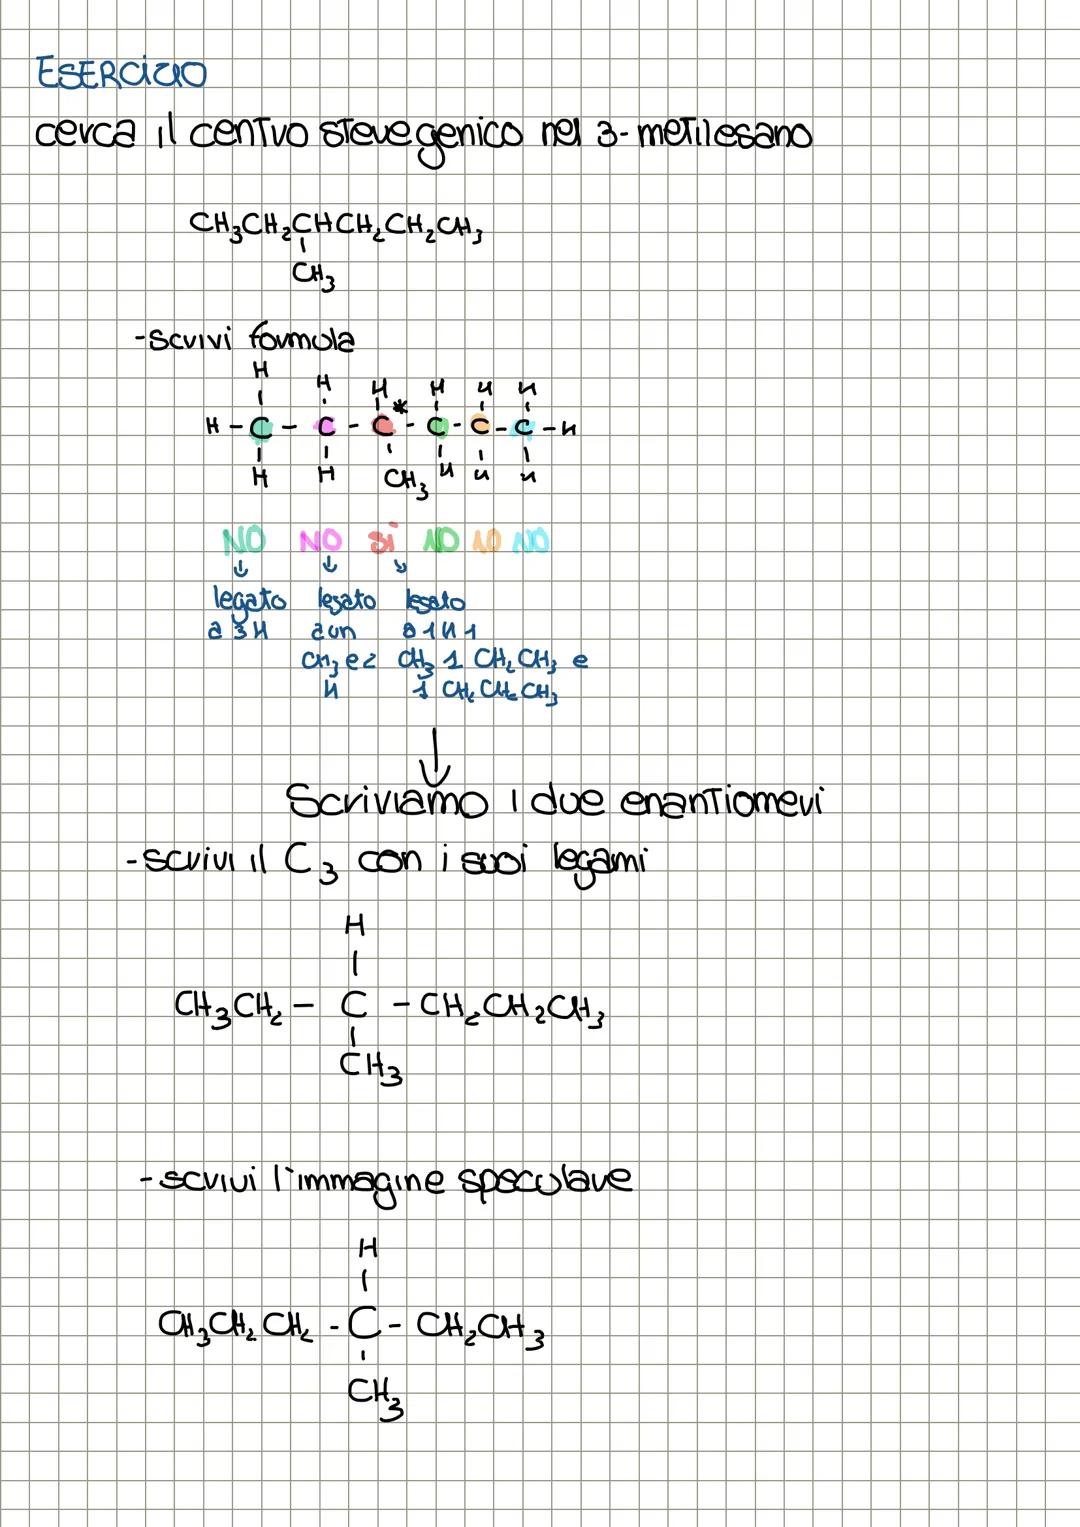 ESERCIZIO
cerca il centro stereogenico nel 3-metilesano
CH₃CH₂CHCH₂CH₂CH₃
CH₃
-scrivi formula
H H H H H H
H - C - C - C* - C - C - C - H
H H CH₃ H H H
NO NO Sì NO NO NO
legato legato legato
a 3H a un a 1 H 1
CH₃ e 2 CH₃ 1 CH₂ CH₃ e
H 1 CH₂ CH₂ CH₃
Scriviamo i due enantiomeri
-scrivi il C₃ con i suoi legami
H
CH₃CH₂ - C - CH₂CH₂CH₃
CH₃
-scrivi l'immagine speculare
H
CH₃CH₂ CH₂ - C - CH₂CH₃
CH₃